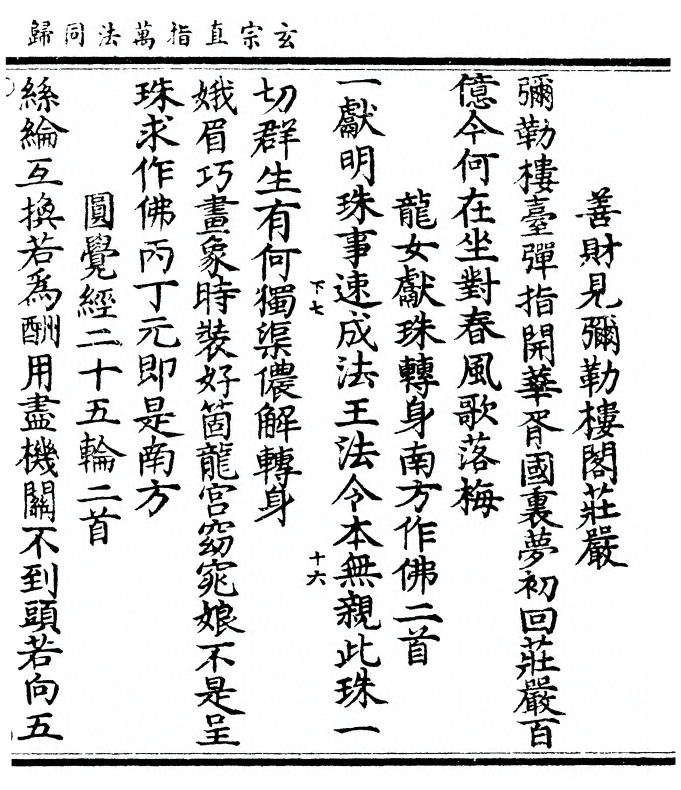 玄宗直指萬法同歸
善財見彌勒樓閣莊嚴
彌勒樓臺彈指開華胥國裏夢初回莊嚴百
億今何在坐對春風歌落梅
龍女獻珠轉身南方作佛二首
一獻明珠事速成法王法令本無親此珠一
下七
十六
切群生有何獨渠儂解轉身
娥眉巧畫象時裝好箇龍宮窈窕娘不是呈
珠求作佛丙丁元即是南方
圓覺經二十五輪二首
絲綸互換若為酬用盡機關不到頭若向五